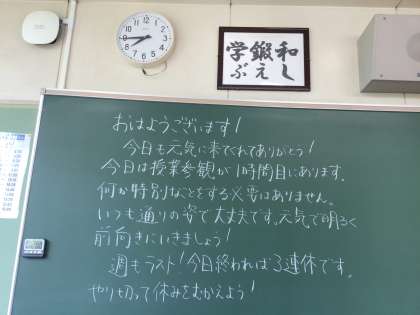 和し
鍛え
学ぶ
おはようございます!
今日も元気に来てくれてありがとう!
今日は授業参観が1時間目にあります。
何か特別なことをする必要はありません。
いつも通りの姿で大丈夫です。元気で明るく
前向きにいきましょう!
週もラスト!今日終われば3連休です。
やり切って休みをむかえよう!